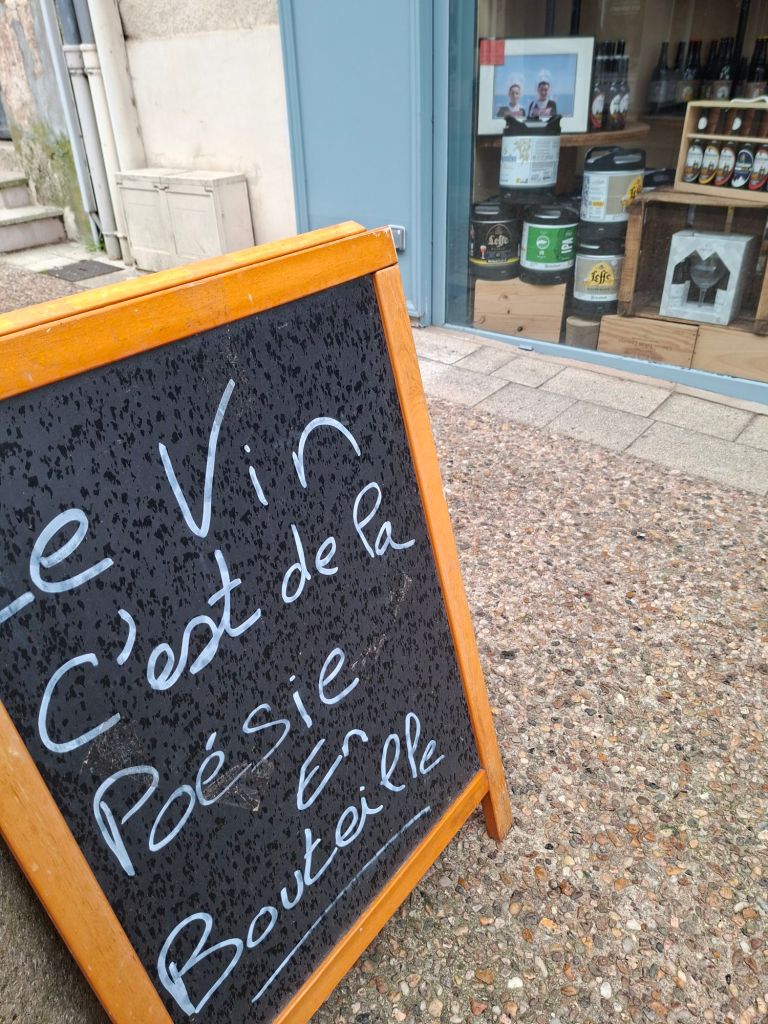 Le Vin
C'est de la
Poésie
En
Bouteille
Leffe
IPA
Leffe
Leffe